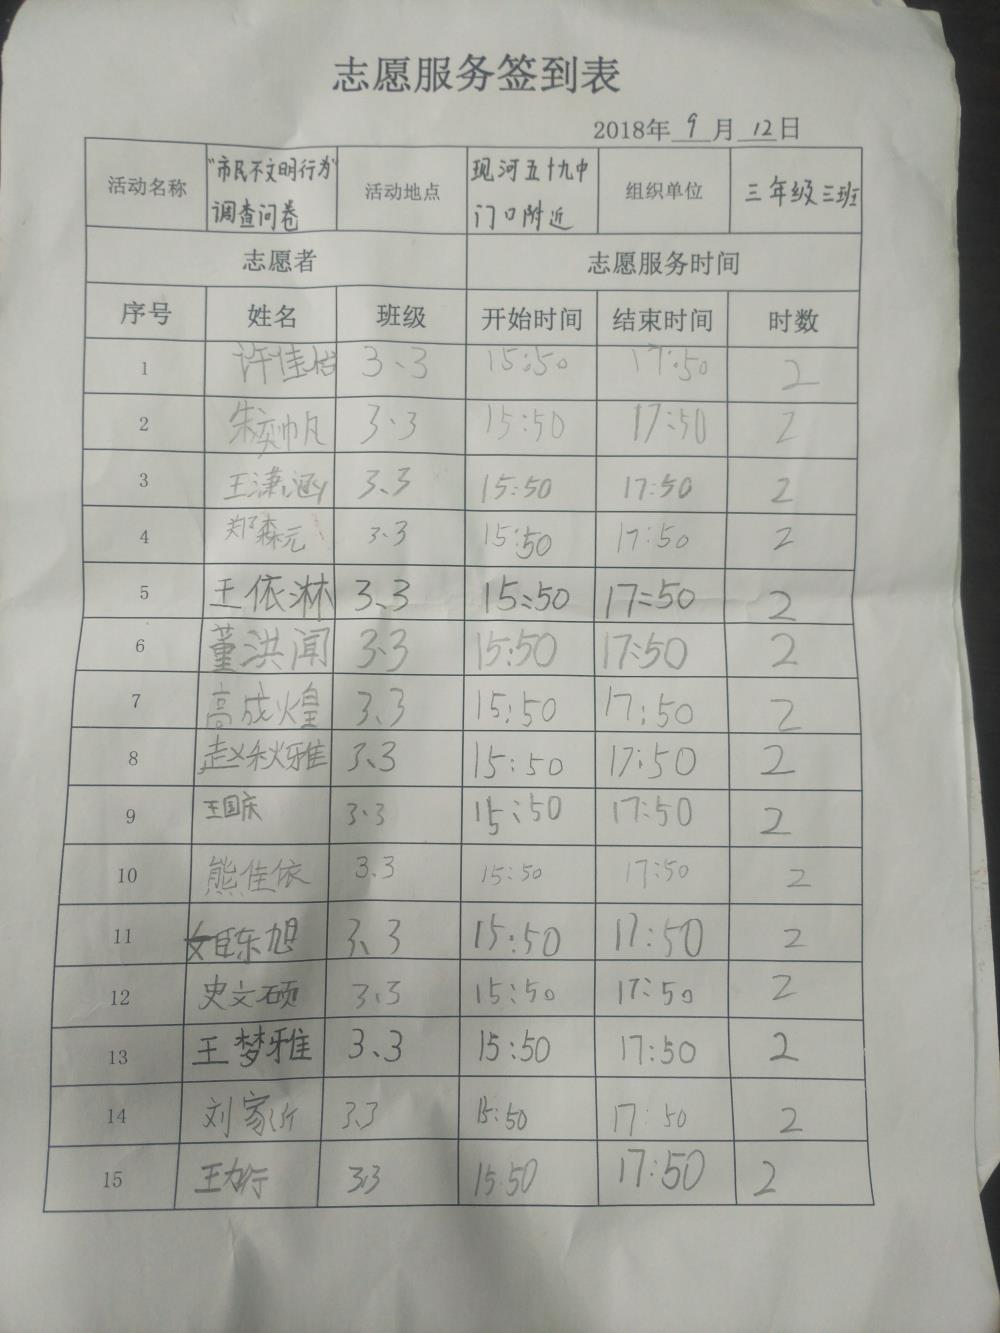 志愿服务签到表
2018年 9 月 12 日
活动名称 "市民不文明行为" 调查问卷 活动地点 现河五十九中门口附近 组织单位 三年级三班
志愿者 志愿服务时间
序号 姓名 班级 开始时间 结束时间 时数
1 许佳怡 3、3 15:50 17:50 2
2 朱奕帆 3.3 15:50 17:50 2
3 王潇涵 3、3 15:50 17:50 2
4 郑森元 3.3 15:50 17:50 2
5 王依淋 3、3 15:50 17:50 2
6 董洪闻 3.3 15:50 17:50 2
7 高成煌 3、3 15:50 17:50 2
8 赵秋雅 3、3 15:50 17:50 2
9 王国庆 3.3 15:50 17:50 2
10 熊佳依 3.3 15:50 17:50 2
11 东旭 3、3 15:50 17:50 2
12 史文硕 3.3 15:50 17:50 2
13 王梦雅 3、3 15:50 17:50 2
14 刘家 3.3 15:50 17:50 2
15 王 3.3 15:50 17:50 2